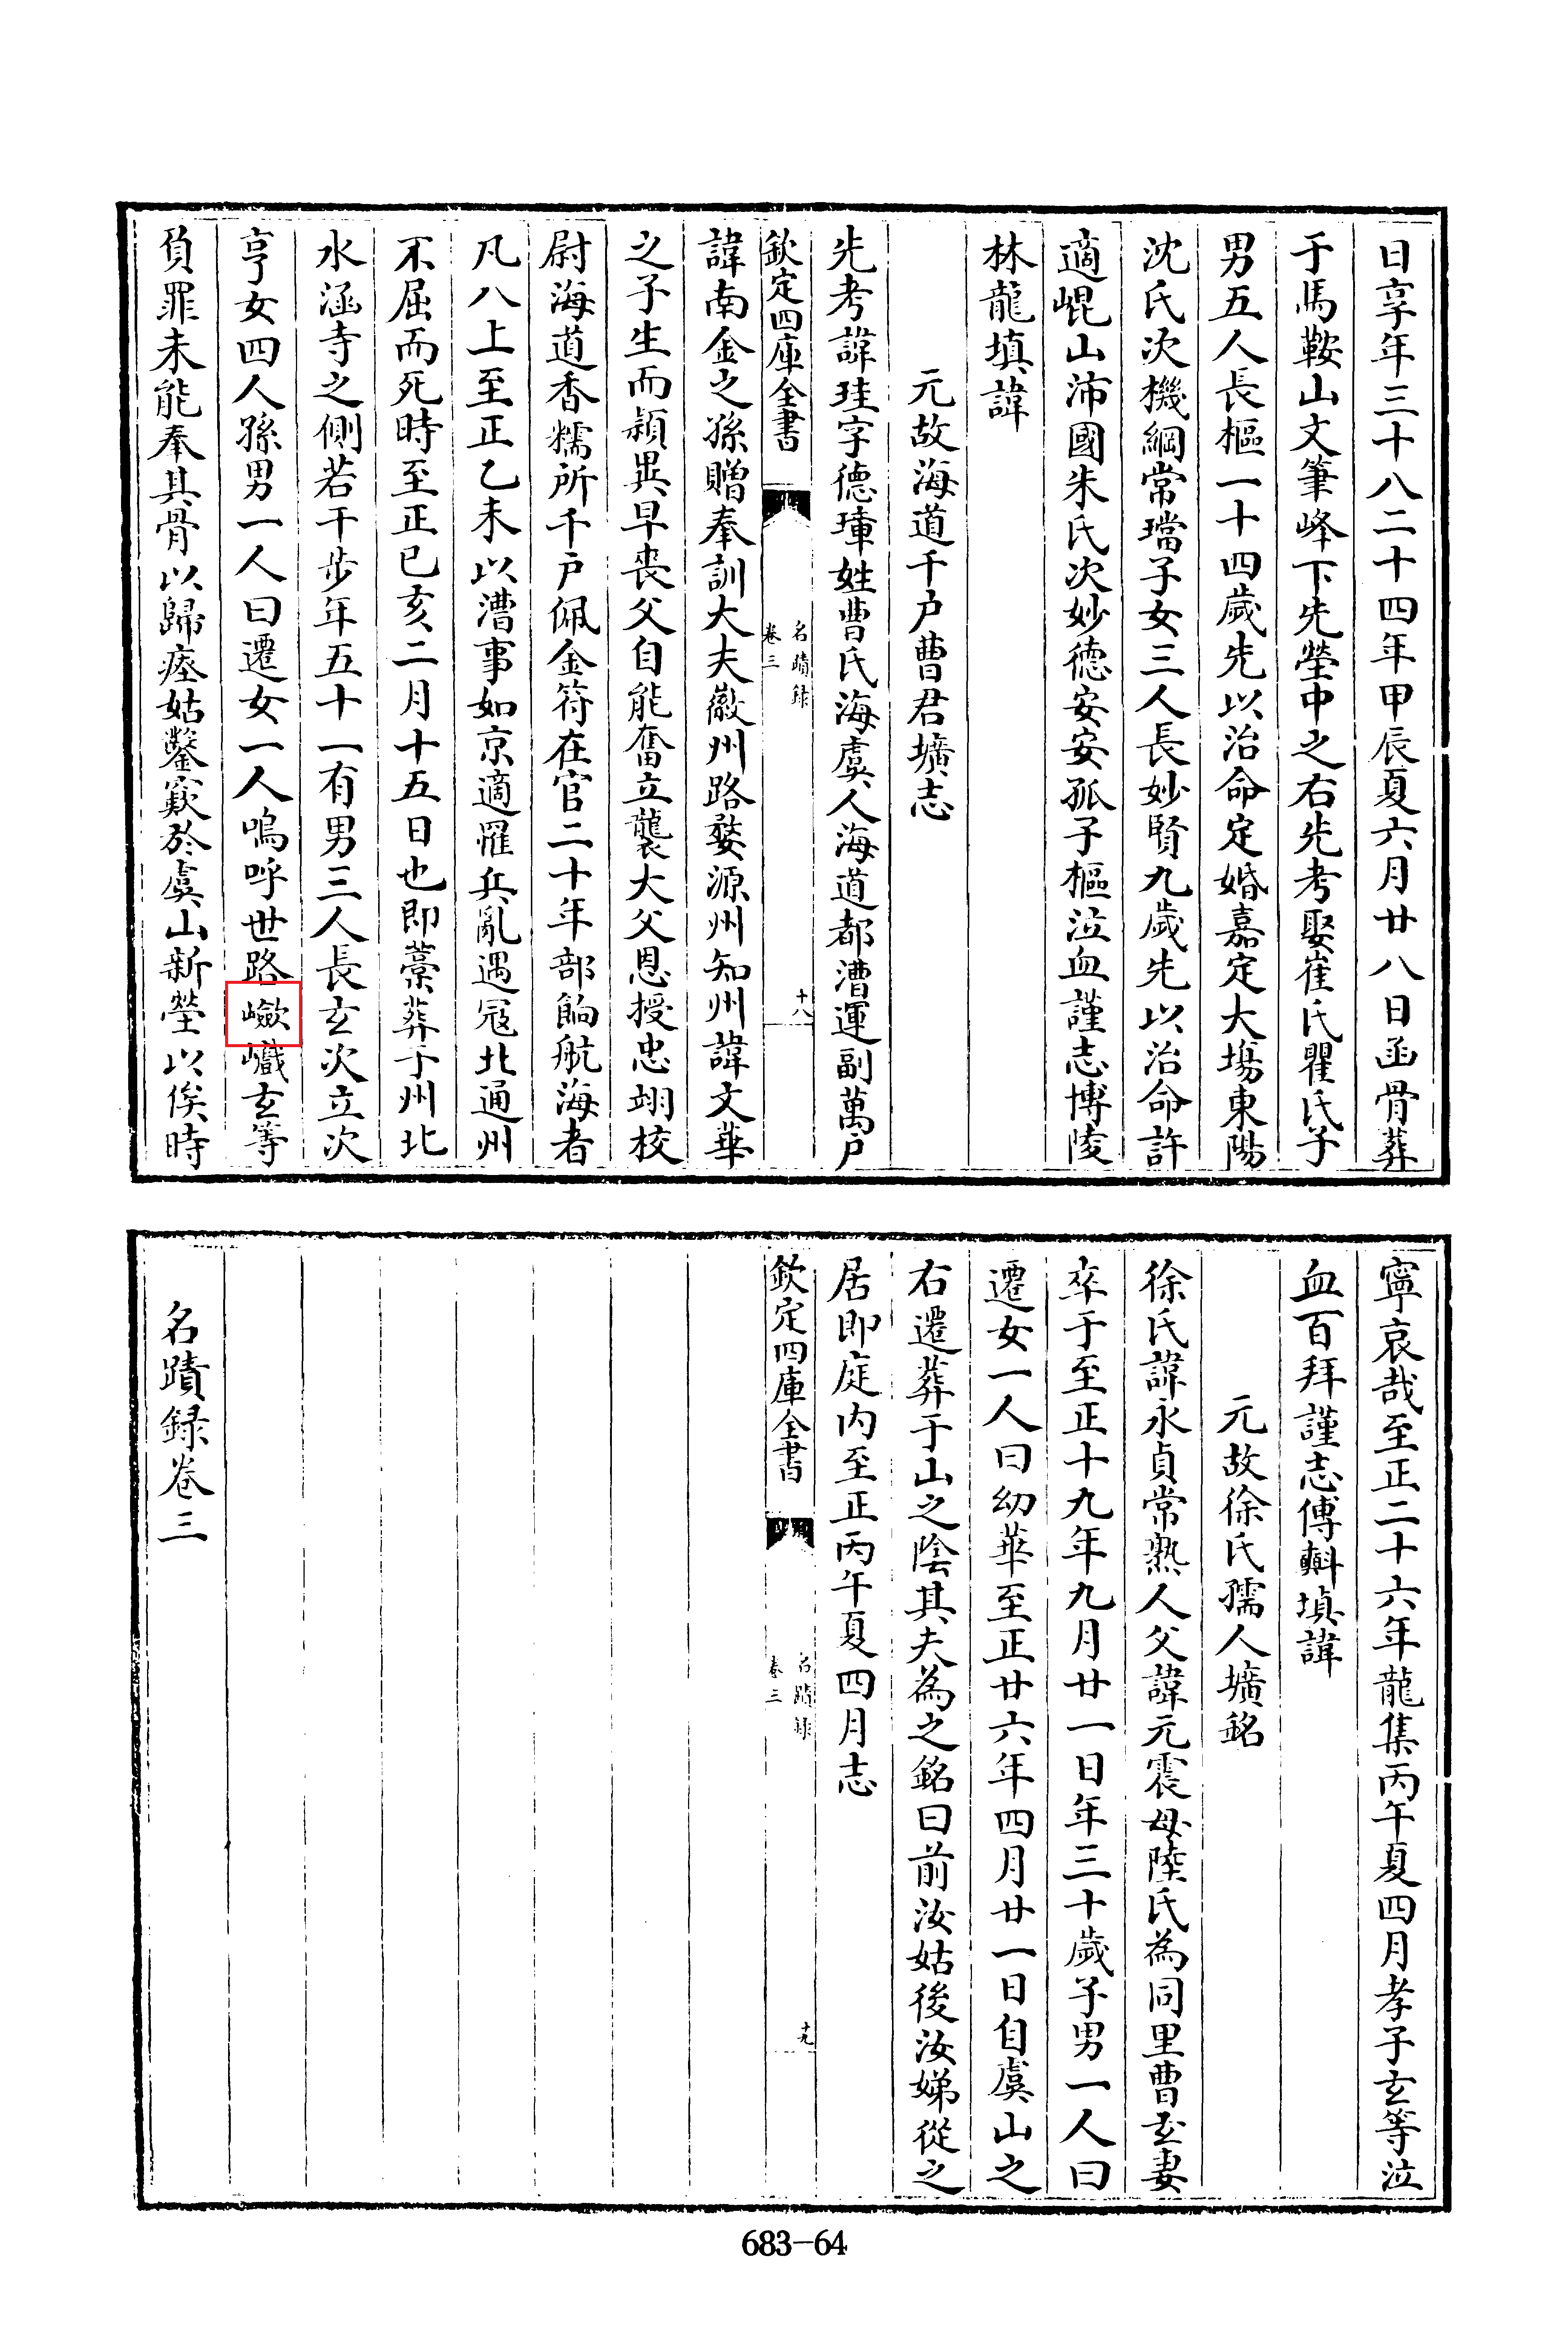 日享年三十八二十四年甲辰夏六月廿八日函骨葬
于馬鞍山文筆峰下先塋中之右先考娶崔氏瞿氏子
男五人長樞一十四歲先以治命定婚嘉定大場東陽
沈氏次機綱常璫子女三人長妙賢九歲先以治命許
適崐山沛國朱氏次妙德安安孤子樞泣血謹志博陵
林龍填諱
元故海道千户曹君壙志
先考諱珪字德璋姓曹氏海虞人海道都漕運副萬户
欽定四庫全書
名蹟録
卷三
十八
諱南金之孫贈奉訓大夫徽州路婺源州知州諱文華
之子生而頴異早喪父自能奮立襲大父恩授忠翊校
尉海道香糯所千户佩金符在官二十年部餉航海者
凡八上至正乙未以漕事如京適罹兵亂遇冦北通州
不屈而死時至正已亥二月十五日也即藁葬于州北
水涵寺之側若干步年五十一有男三人長玄次立次
亨女四人孫男一人曰遷女一人嗚呼世路嶮巇玄等
負罪未能奉其骨以歸瘞姑鑿窾於虞山新塋以俟時
寧哀哉至正二十六年龍集丙午夏四月孝子玄等泣
血百拜謹志傅㪺填諱
元故徐氏孺人壙銘
徐氏諱永貞常熟人父諱元震母陸氏為同里曹玄妻
卒于至正十九年九月廿一日年三十歲子男一人曰
遷女一人曰幼華至正廿六年四月廿一日自虞山之
右遷葬于山之陰其夫為之銘曰前汝姑後汝娣從之
居即庭内至正丙午夏四月志
欽定四庫全書
名蹟録
卷三
十九
名蹟録卷三
683-64